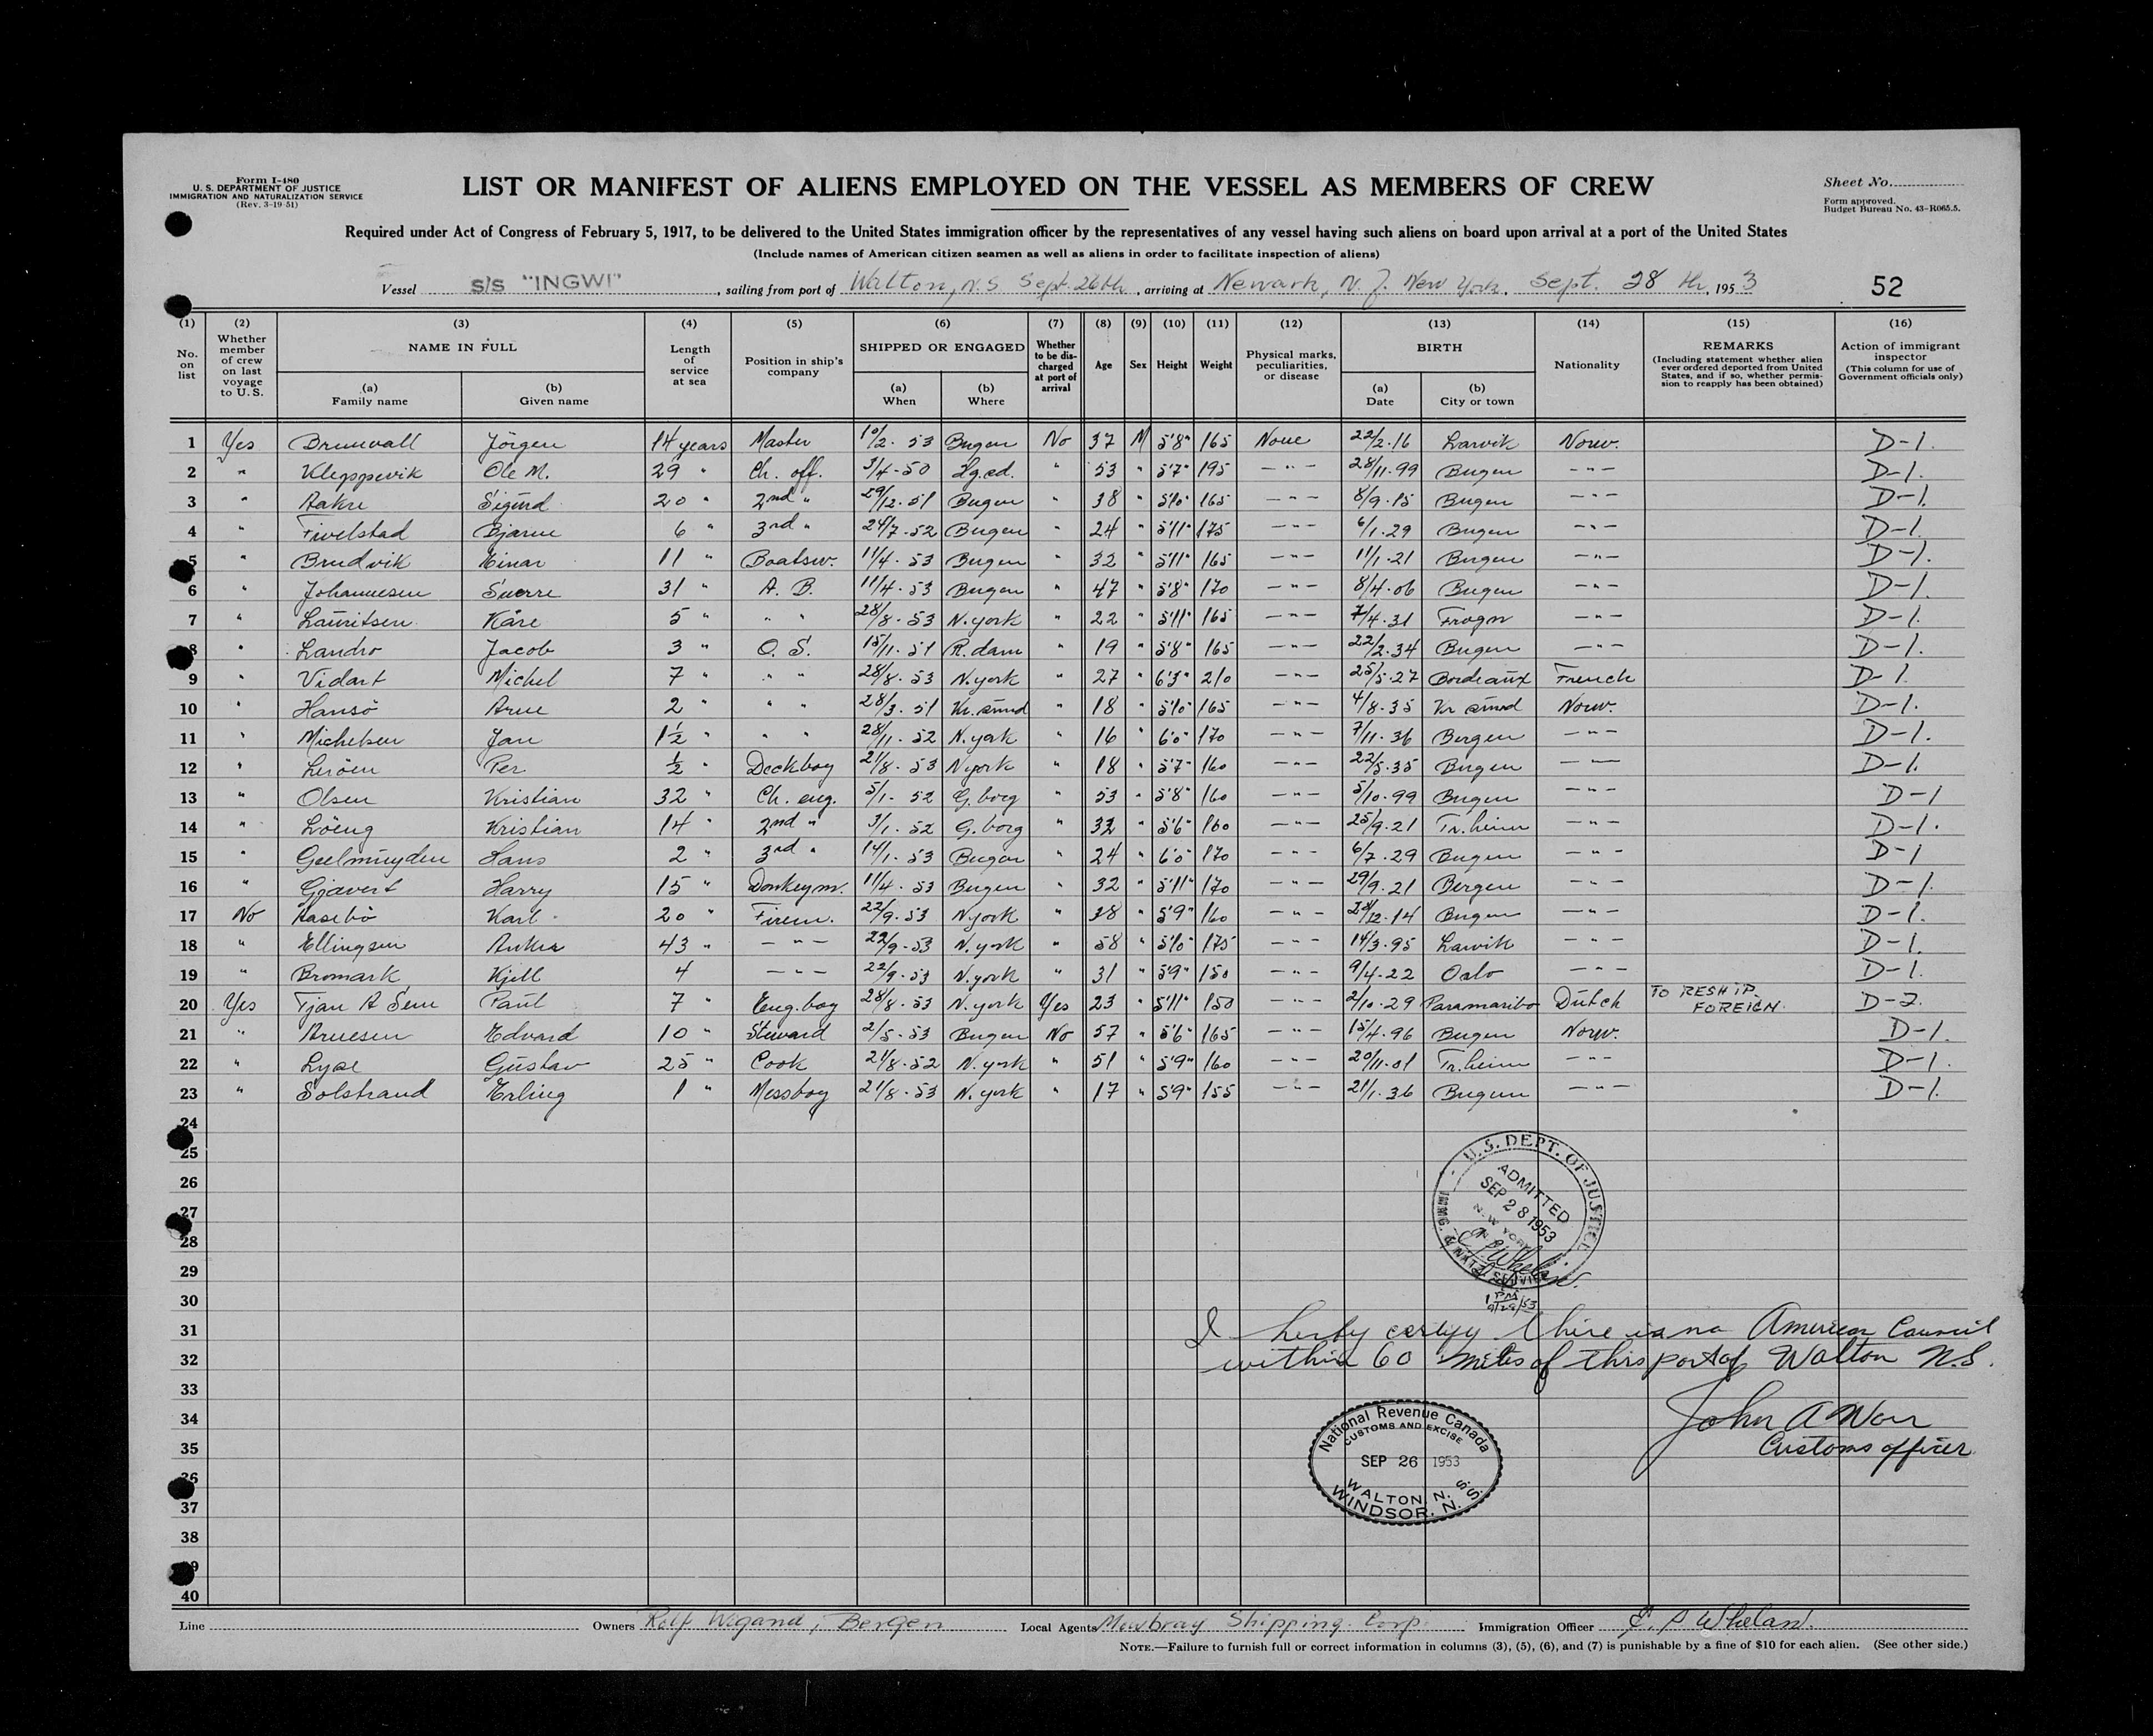 Form I-480
U. S. DEPARTMENT OF JUSTICE
IMMIGRATION AND NATURALIZATION SERVICE
(Rev. 3-19-51)
LIST OR MANIFEST OF ALIENS EMPLOYED ON THE VESSEL AS MEMBERS OF CREW
Sheet No.
Form approved.
Budget Bureau No. 43-R065.5.
Required under Act of Congress of February 5, 1917, to be delivered to the United States immigration officer by the representatives of any vessel having such aliens on board upon arrival at a port of the United States
(Include names of American citizen seamen as well as aliens in order to facilitate inspection of aliens)
Vessel S/S "INGWI", sailing from port of Walton, N.S. Sept. 26th, arriving at Newark, N. J. New York, Sept. 28 th, 1953
52
(1) (2) (3) (4) (5) (6) (7) (8) (9) (10) (11) (12) (13) (14) (15) (16)
No. on list
Whether member of crew on last voyage to U. S.
NAME IN FULL
(a) Family name
(b) Given name
Length of service at sea
Position in ship's company
SHIPPED OR ENGAGED
(a) When
(b) Where
Whether to be discharged at port of arrival
Age
Sex
Height
Weight
Physical marks, peculiarities, or disease
BIRTH
(a) Date
(b) City or town
Nationality
REMARKS
(Including statement whether alien ever ordered deported from United States, and if so, whether permission to reapply has been obtained)
Action of immigrant inspector
(This column for use of Government officials only)
1 Yes Brunvall Jörgen 14 years Master 10/2. 53 Bergen No 37 M 5'8" 165 None 22/2.16 Larvik Norw. D-1.
2 " Kleppevik Ole M. 29 " Ch. off. 3/4-50 " 53 " 5'7" 195 -"- 28/11.99 Bergen -"- D-1.
3 " Aakre Sigurd 20 " 2nd " 29/12.51 Bergen " 38 " 5'10" 165 -"- 8/9.15 Bergen -"- D-1.
4 " Fivelstad Bjarne 6 " 3rd " 24/7.52 Bergen " 24 " 5'11" 175 -"- 6/1.29 Bergen -"- D-1.
5 " Brudvik Einar 11 " Boatsw. 11/4. 53 Bergen " 32 " 5'11" 165 -"- 11/1.21 Bergen -"- D-1.
6 " Johannesen Sverre 31 " A. B. 11/4. 53 Bergen " 47 " 5'8" 170 -"- 8/4.06 Bergen -"- D-1.
7 " Lauritsen Kåre 5 " " " 28/8. 53 N.york " 22 " 5'11" 165 -"- 7/4.31 Frogn -"- D-1.
8 " Landro Jacob 3 " O. S. 15/11. 51 R.dam " 19 " 5'8" 165 -"- 22/2.34 Bergen -"- D-1.
9 " Vidart Michel 7 " " " 28/8. 53 N.york " 27 " 6'3" 210 -"- 25/5.27 Bordeaux French D-1
10 " Hansö Arne 2 " " " 28/3. 51 Kr.sund " 18 " 5'10" 165 -"- 4/8.35 Kr sund Norw. D-1.
11 " Michelsen Jan 1½ " " " 28/11. 52 N.york " 16 " 6'0" 170 -"- 7/11.36 Bergen -"- D-1.
12 " Leröen Per ½ " Deckboy 21/8. 53 N.york " 18 " 5'7" 160 -"- 22/5.35 Bergen D-1.
13 " Olsen Kristian 32 " Ch. eng. 5/1. 52 G.borg " 53 " 5'8" 160 -"- 5/10.99 Bergen -"- D-1
14 " Löeng Kristian 14 " 2nd " 3/1. 52 G.borg " 32 " 5'6" 160 -"- 25/9.21 Tr.heim -"- D-1.
15 " Geelmuyden Hans 2 " 3rd " 14/1. 53 Bergen " 24 " 6'0" 170 -"- 6/7.29 Bergen -"- D-1
16 " Gjavert Harry 15 " Donkeym. 11/4. 53 Bergen " 32 " 5'11" 170 -"- 29/9.21 Bergen -"- D-1.
17 No Aasebö Karl 20 " Firem. 22/9.53 N.york " 38 " 5'9" 160 -"- /12.14 Bergen -"- D-1.
18 " Ellingsen Anker 43 " -"- 22/9.53 N.york " 58 " 5'10" 175 -"- 14/3.95 Larvik -"- D-1.
19 " Bromark Kjell 4 -"- 22/9.53 N.york " 31 " 5'9" 150 -"- 9/4.22 Oslo -"- D-1.
20 Yes Tjan A Sem Paul 7 " Eng.boy 28/8.53 N.york Yes 23 " 5'11" 150 -"- 2/10.29 Paramaribo Dutch TO RESHIP FOREIGN. D-2.
21 " Arnesen Edvard 10 " Steward 2/5.53 Bergen No 57 " 5'6" 165 -"- 15/4.96 Bergen Norw. D-1.
22 " Lyse Gustav 25 " Cook 21/8.52 N.york " 51 " 5'9" 160 -"- 20/11.01 Tr.heim -"- D-1.
23 " Solstrand Erling 1 " Messboy 21/8.53 N.york " 17 " 5'9" 155 -"- 21/1.36 Bergen -"- D-1.
24
25
26
27
28
29
30
31
32
33
34
35
36
37
38
39
40
U. S. DEPT. OF JUSTICE
ADMITTED
SEP 28 1953
NEW YORK
IMMIG. & NATZ. SERVICE
1 PM
9/28/53
I herby certify there is no American Council
within 60 miles of this port of Walton N.S.
John A Weir
Customs officer
National Revenue Canada
CUSTOMS AND EXCISE
SEP 26 1953
WALTON, N. S.
WINDSOR, N. S.
Line Owners Rolf Wigand, Bergen Local Agents Mowbray Shipping Corp. Immigration Officer E. P Whelan.
NOTE.—Failure to furnish full or correct information in columns (3), (5), (6), and (7) is punishable by a fine of $10 for each alien. (See other side.)